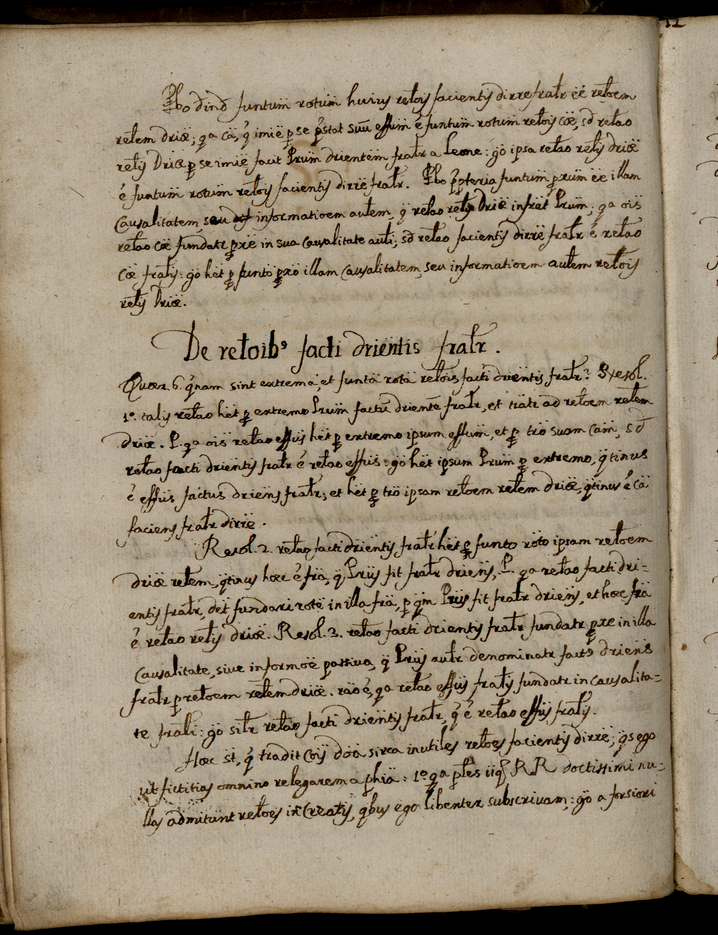 Pbo dind funtum rotum huius retois facientis dirre fratr ee retoem
retem drioe; qa ca, q imie p se pstat suu effum e funtum rotum retois coe, sd retao
retis Drioe p se imie facit Prum drientem fratr a Leone: go ipsa retao retis drioe
e funtum rotum retois facientis dirre fratr. Pbo pteria funtum pxum ee illam
Causalitatem, seu informatioem autem, q retao retis Drioe infrat Prum: qa ois
retao coe fundatr pxe in sua causalitate autli; sd retao facientis dirre fratr e retao
coe fratis: go het p funto pxo illam Causalitatem, seu informatioem autem retois
retis Drioe.
De retoib9 facti drientis fratr.
Quaer. 6. qnam sint extrema, et funta rota retois facti drientis fratr? Resol.
1o. talis retao het p extremo Prum factu driente fratr, et tratr ad retoem retem
drioe. P. qa ois retao effus het p extremo ipsum effum, et p tro suam cam, sd
retao facti drientis fratr e retao effus: go het ipsum Prum p extremo, qtinus
e effus factus driens fratr, et het p tro ipsam retoem retem drioe, qtinus e ca
faciens fratr dirre.
Resol. 2. retao facti drientis fratr het p funto roto ipsam retoem
drioe retem, qtinus hoec e fra, q Prus fit fratr driens, P. qa retao facti dri-
entis fratr, det fundari rote in illa fra, p qm Prus fit fratr driens, et hoec fra
e retao retis drioe. Resol. 3. retao facti drientis fratr fundatr pxe in illa
Causalitate, sive informoe passiva, q Prus autr denominatr fact9 driens
fratr p retoem retem drioe. rao e, qa retao effus fratis fundatr in causalita=
te frali: go siltr retao facti drientis fratr, q e retao effus fratis.
Hoec st, q tradit Cois doa circa inutiles retoes facientis dirre; qs ego
ut fictitias omnino relegarem a phia: 1o. qa ples iiq RR doctissimi nu-
llas admitunt retoes in Creatis, qbus ego libenter subscrivam; go a forsiori